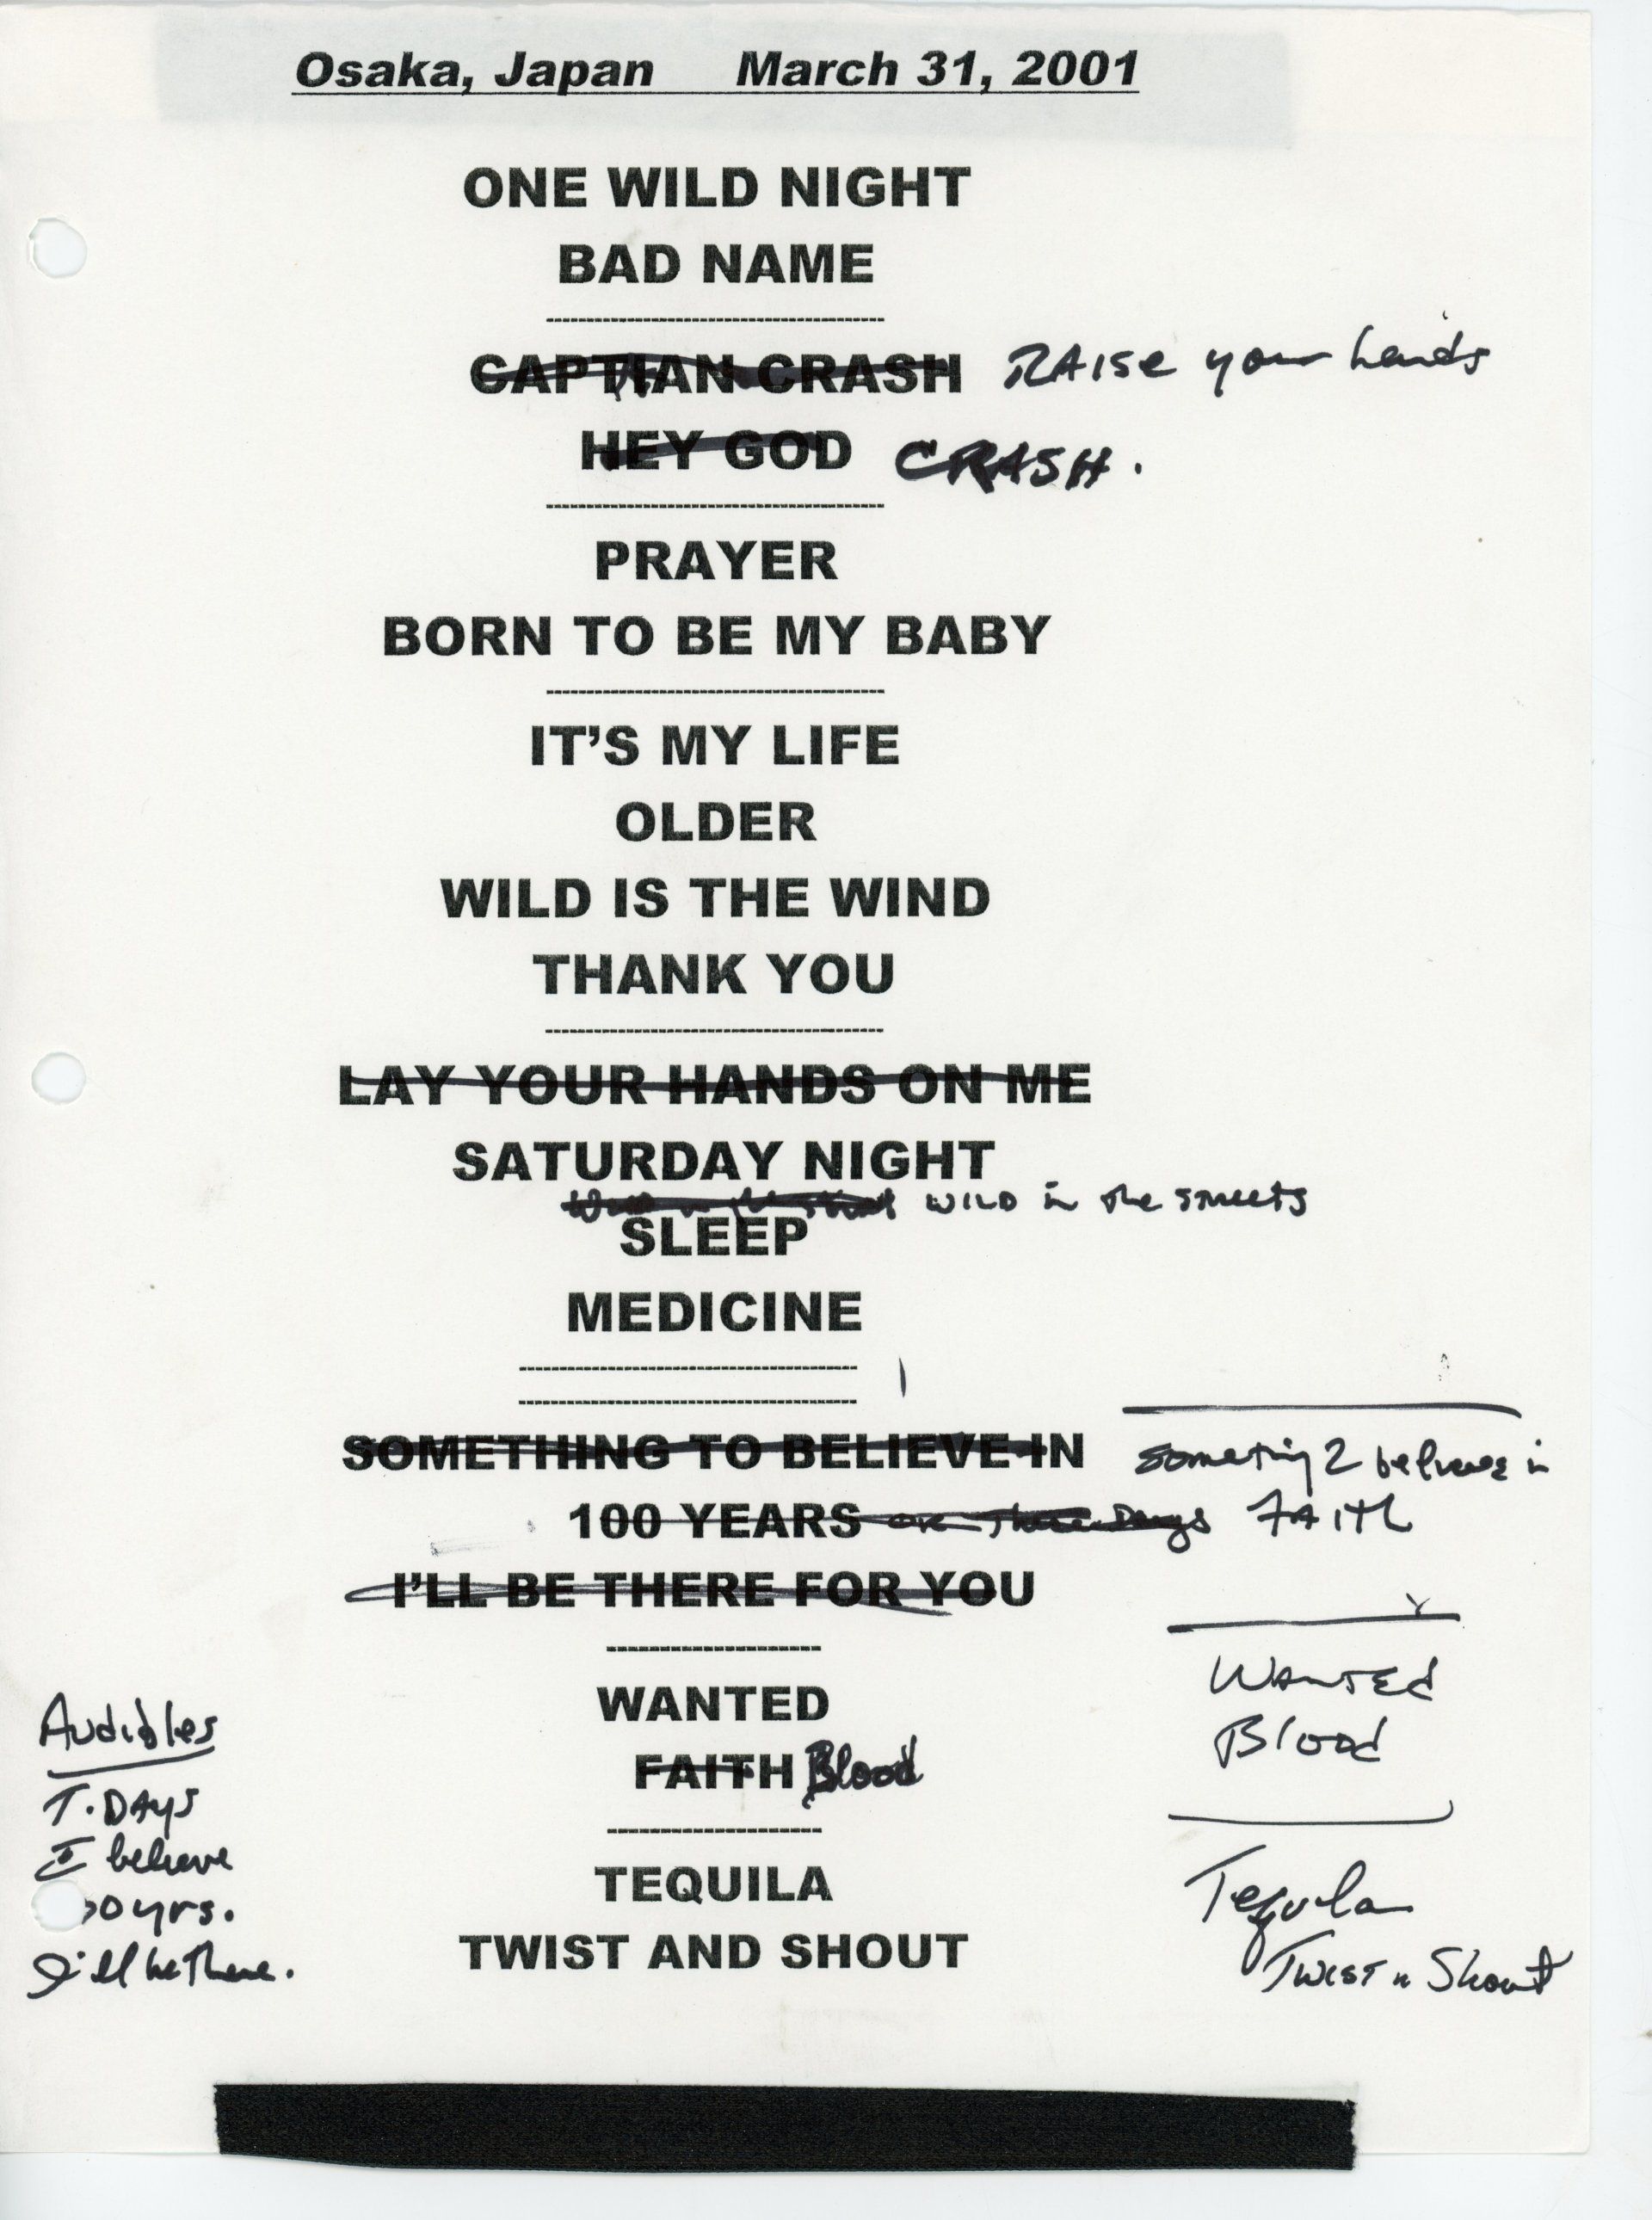 Osaka, Japan March 31, 2001
ONE WILD NIGHT
BAD NAME
CAPTIAN CRASH RAISE your hands
HEY GOD CRASH.
PRAYER
BORN TO BE MY BABY
IT'S MY LIFE
OLDER
WILD IS THE WIND
THANK YOU
LAY YOUR HANDS ON ME
SATURDAY NIGHT
WILD in the streets
SLEEP
MEDICINE
SOMETHING TO BELIEVE IN someting 2 believe in
100 YEARS or These Days FAITH
I'LL BE THERE FOR YOU
WANTED
FAITH Blood
TEQUILA
TWIST AND SHOUT
WANTED
Blood
Tequila
Twist n Shout
Audibles
T. DAYS
I believe
00 yrs.
I'll be There.